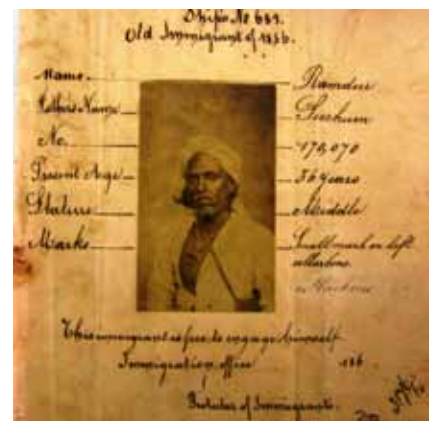 Ship's No 681.
Old Immigrant of 1866.
Name Ramdeen
Father's Name
No. 170,070
Present Age 36 years
Stature Middle
Marks Small mark on left
collarbone.
This immigrant is free to engage himself
Immigration Office 186
Protector of Immigrants.